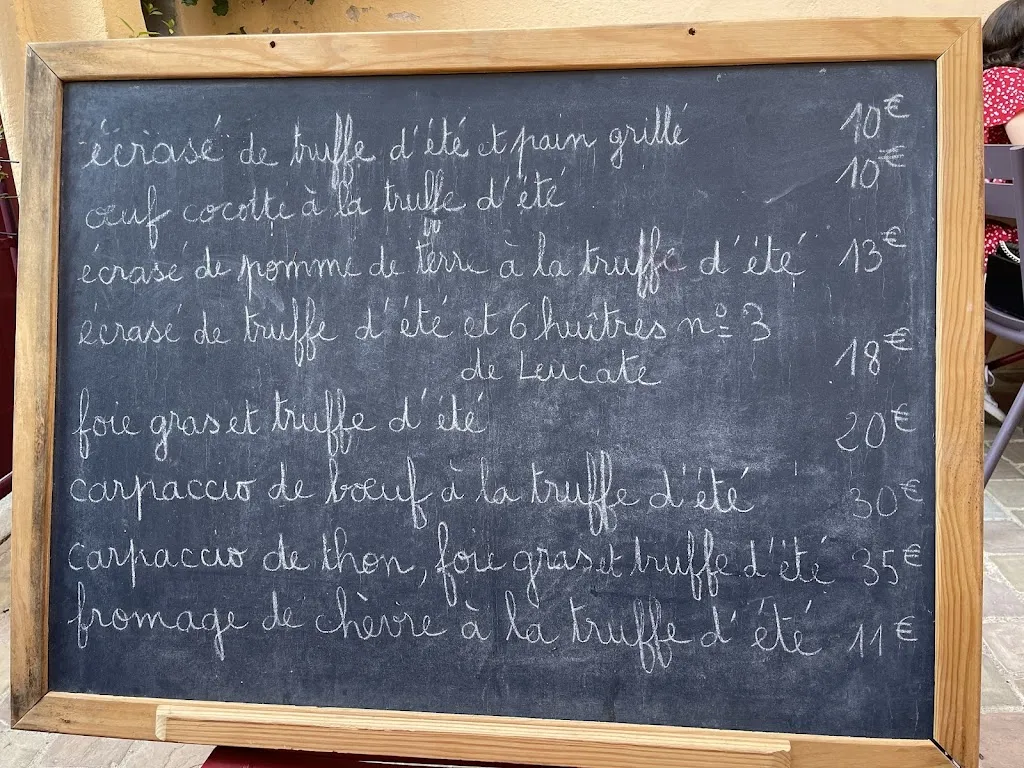 écrasé de truffe d'été et pain grillé 10€
œuf cocotte à la truffe d'été 10€
écrasé de pomme de terre à la truffe d'été 13€
écrasé de truffe d'été et 6 huîtres nº 3
de Leucate 18€
foie gras et truffe d'été 20€
carpaccio de bœuf à la truffe d'été 30€
carpaccio de thon, foie gras et truffe d'été 35€
fromage de chèvre à la truffe d'été 11€